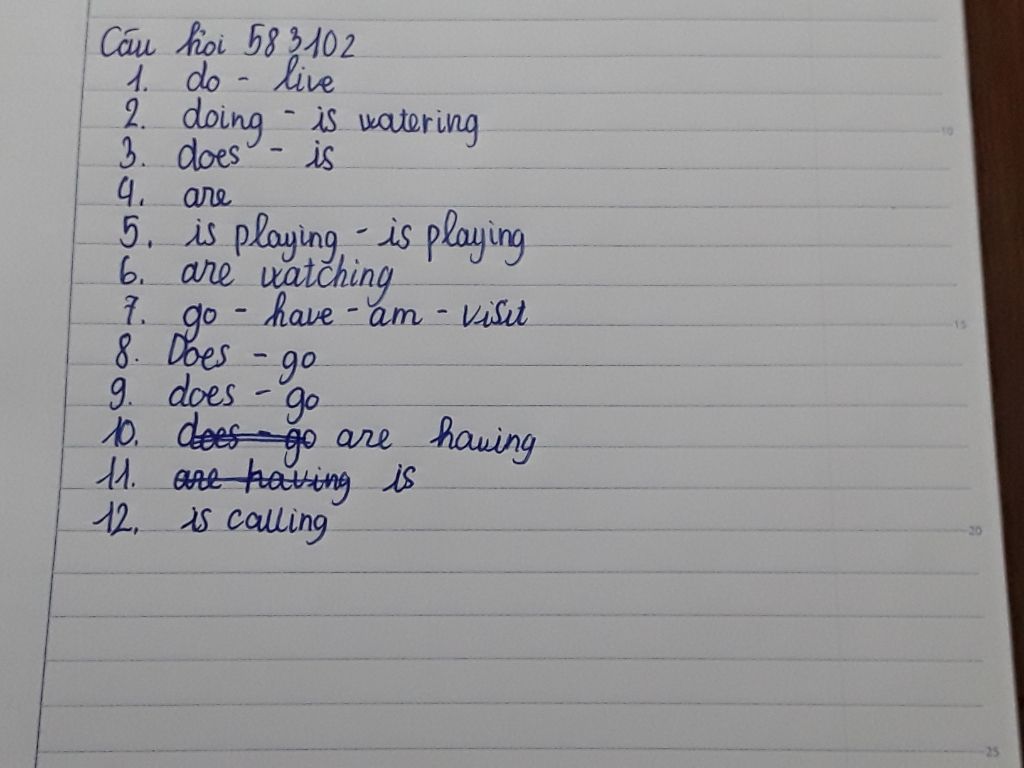 Câu hỏi 583102
1. do - live
2. doing - is watering
3. does - is
4. are
5. is playing - is playing
6. are watching
7. go - have - am - visit
8. Does - go
9. does - go
10. does - go are having
11. are having is
12. is calling
10
15
20
25